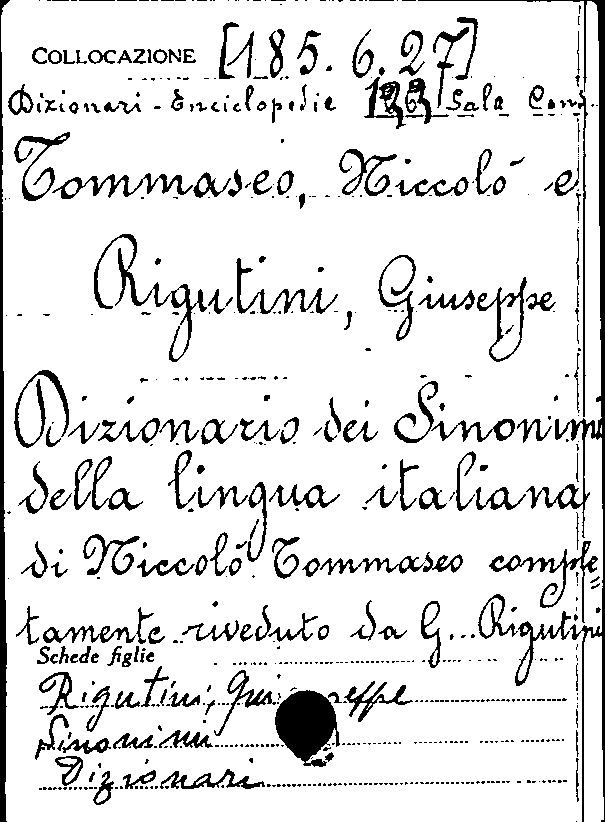 COLLOCAZIONE [185.6.27]
Dizionari - Enciclopedie Sala Cons.
Tommaseo, Niccolò e
Rigutini, Giuseppe
Dizionario dei Sinonimi
della lingua italiana
di Niccolò Tommaseo comple=
tamente riveduto da G. Rigutini
Schede figlie
Rigutini, Giuseppe
Sinonimi
Dizionari